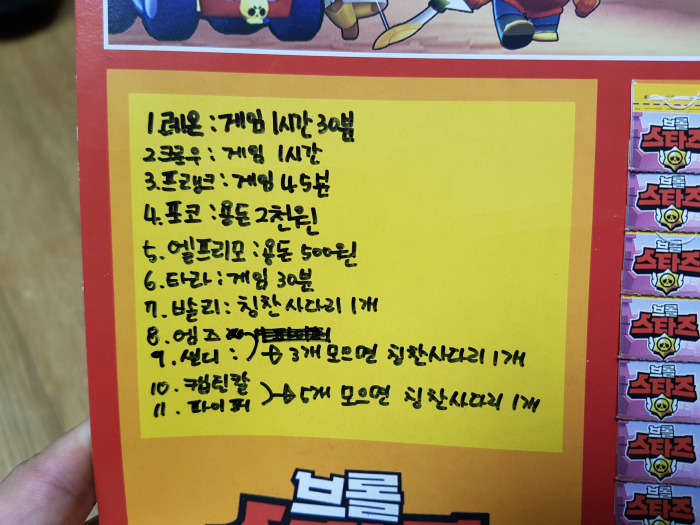 1. 레온 : 게임 1시간 30분
2. 크로우 : 게임 1시간
3. 프랭크 : 게임 45분
4. 포코 : 용돈 2천원
5. 엘프리모 : 용돈 500원
6. 타라 : 게임 30분
7. 발리 : 칭찬 사다리 1개
8. 엠즈
9. 샌디 : → 3개 모으면 칭찬사다리 1개
10. 캡틴칼
11. 파이퍼 → 5개 모으면 칭찬사다리 1개
브롤
스타즈
브롤
스타즈
브롤
스타즈
브롤
스타즈
브롤
스타즈
브롤
스타즈
브롤
스타즈
브롤